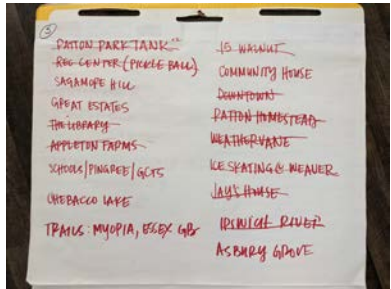 5
PATTON PARK TANK
REC CENTER (PICKLE BALL)
SAGAMORE HILL
GREAT ESTATES
THE LIBRARY
APPLETON FARMS
SCHOOLS/PINGREE/GCTS
CHEBACCO LAKE
TRAILS: MYOPIA, ESSEX
15 WALNUT
COMMUNITY HOUSE
DOWNTOWN
PATTON HOMESTEAD
WEATHERVANE
ICE SKATING @ WEAVER
JAY'S HOUSE
IPSWICH RIVER
ASBURY GROVE